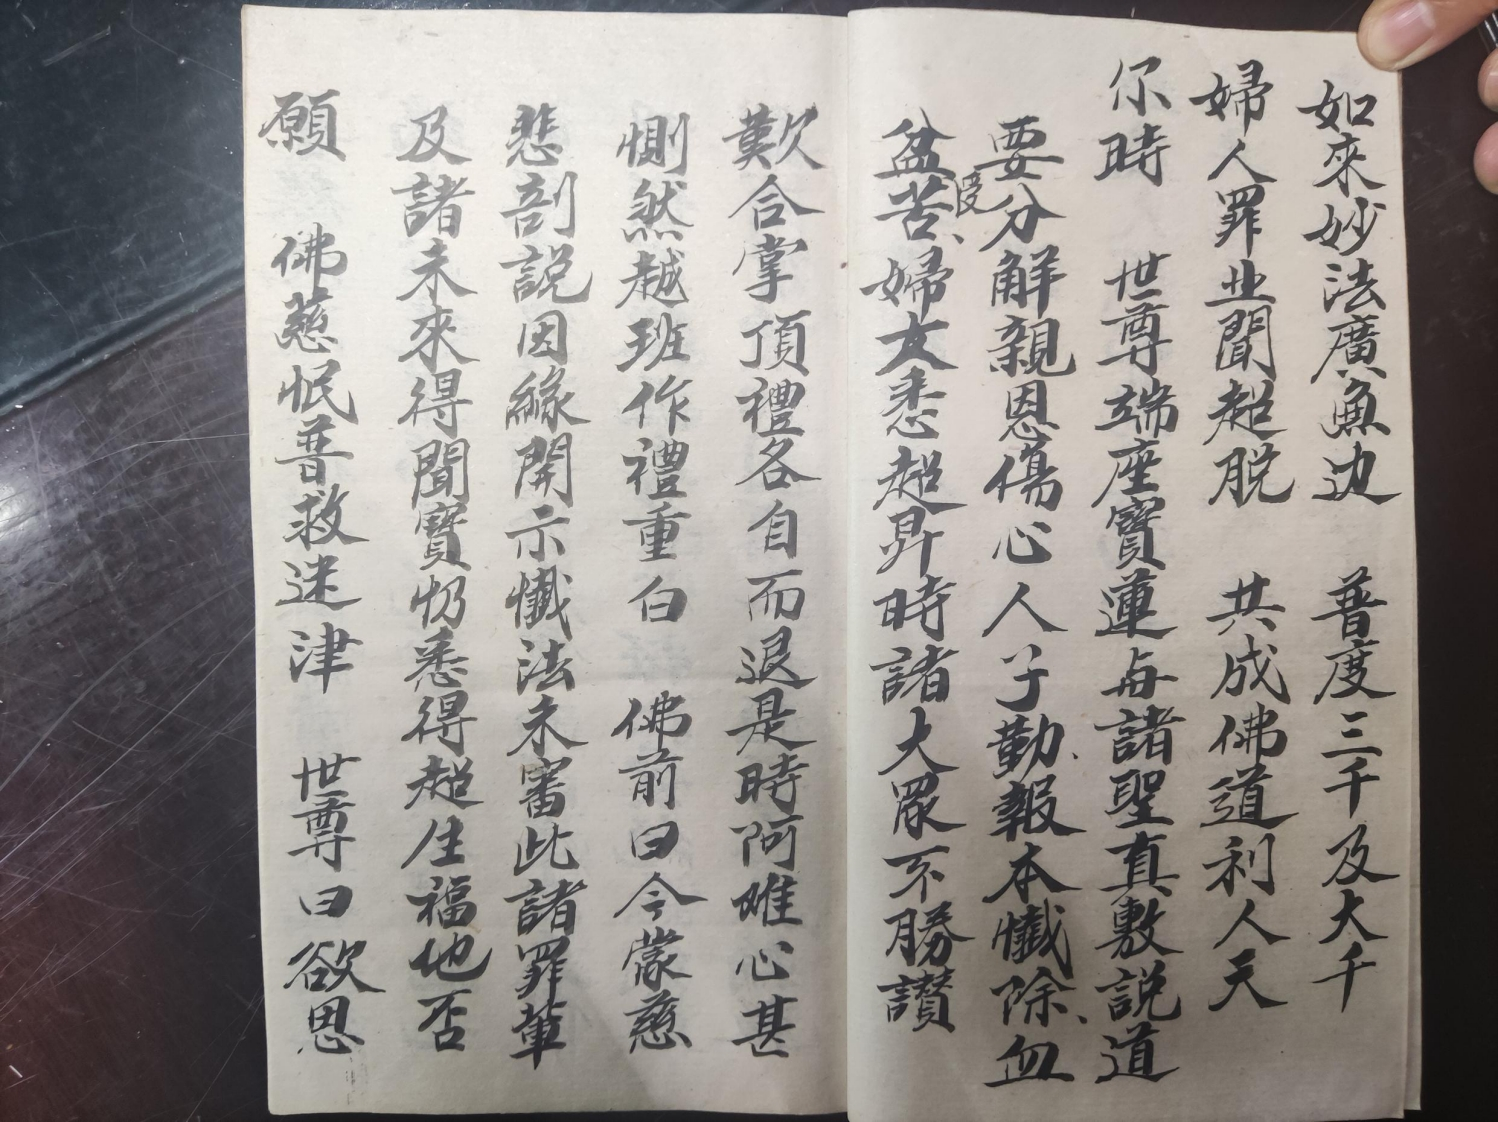 如來妙法廣無边　普度三千及大千
婦人罪业聞超脱　共成佛道利人天
尔時　世尊端座寳蓮与諸聖真敷説道
要分解親恩傷心人子勤報本懺除血
盆苦受婦女悉超昇時諸大眾不勝讃
歎合掌頂禮各自而退是時阿难心甚
惻然越班作禮重白　佛前曰今蒙慈
悲剖説因緣開示懺法未審此諸罪輩
及諸未來得聞寳忉悉得超生福地否
願　佛慈愍普救迷津　世尊曰欲恩